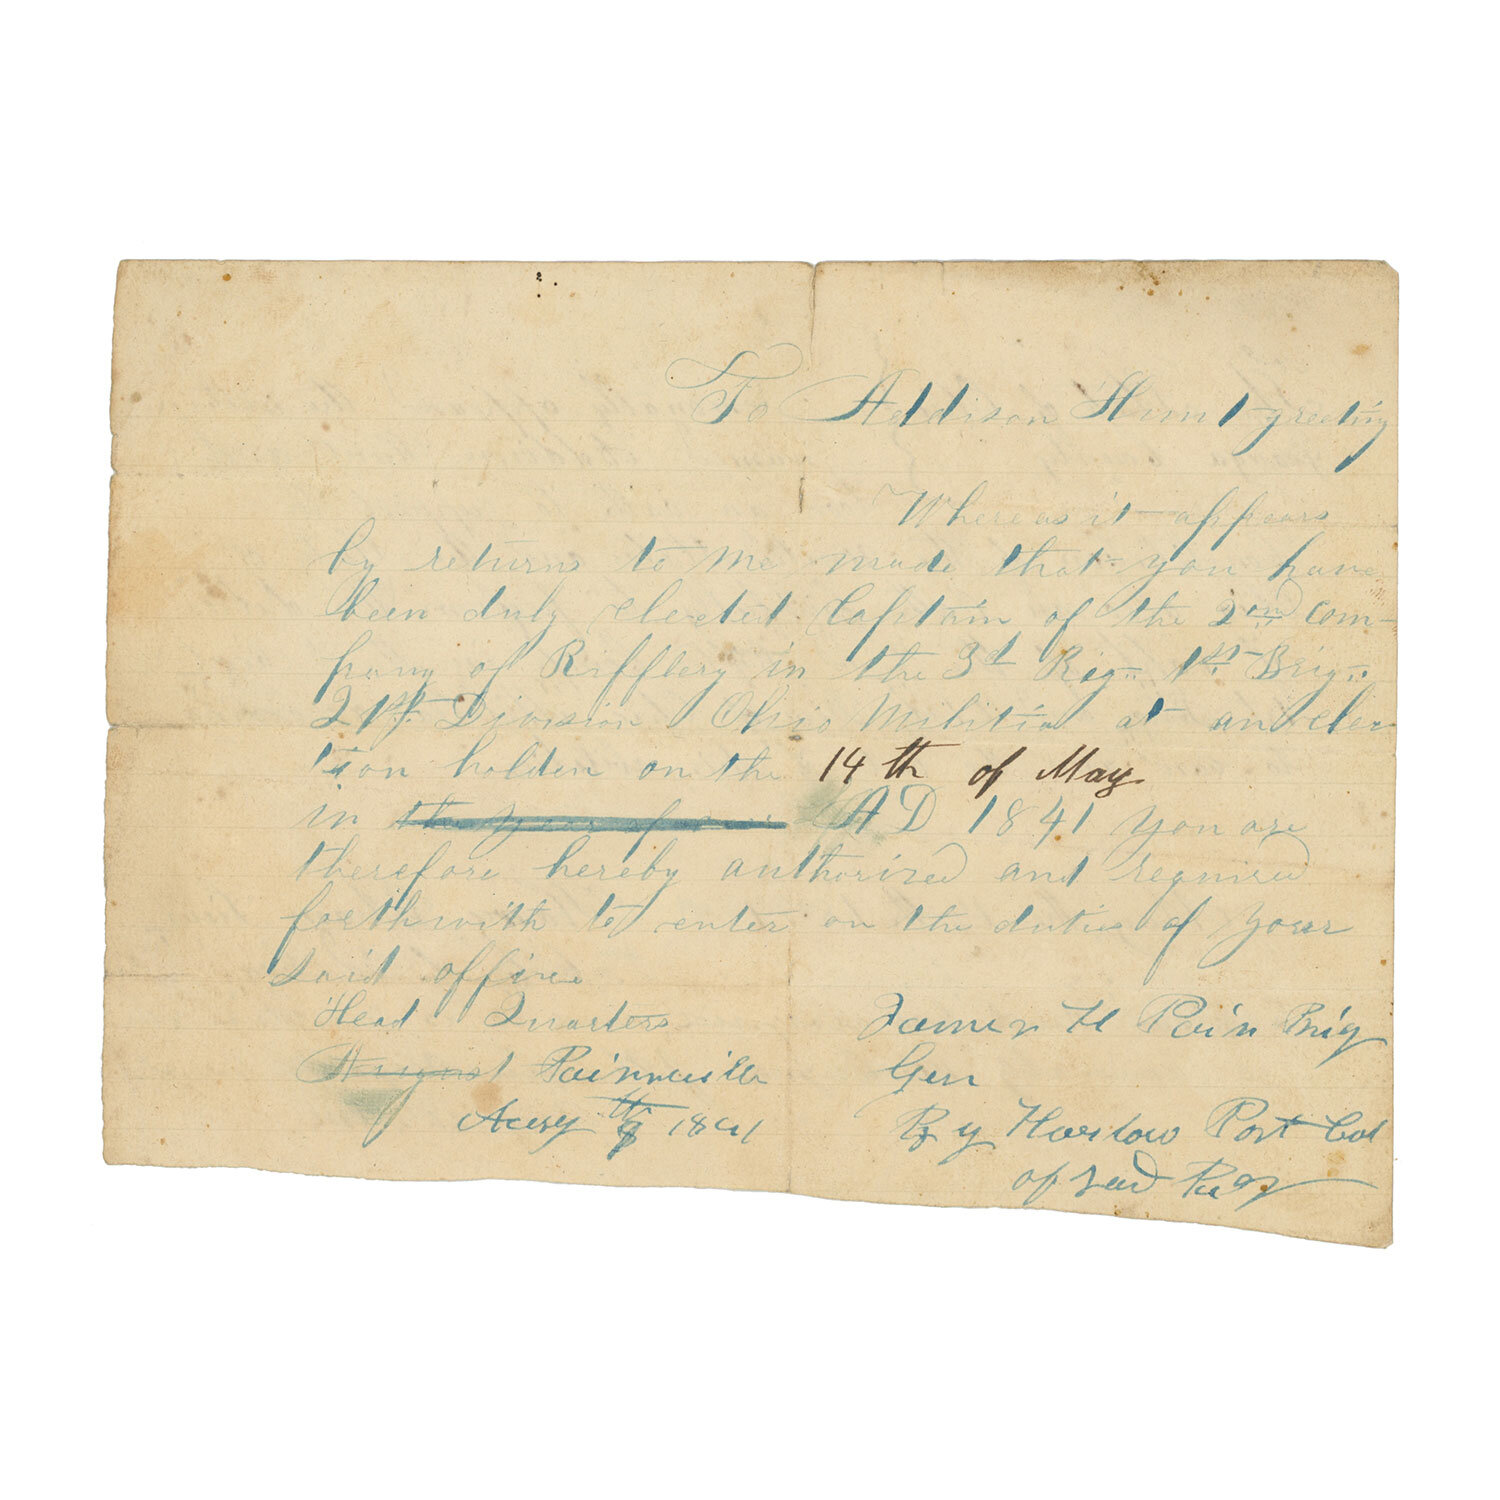 To Addison Hunt greeting
Whereas it appears
by returns to me made that you have
been duly elected Captain of the 2nd com-
pany of Rifflery in the 3d Reg. 1st Brig.
21st Division Ohio Militia at an elec
tion holden on the 14th of May
in the year of our AD 1841 you are
therefore hereby authorized and required
forthwith to enter on the duties of your
said office
Head Quarters
August Painsville
Augy 9th 1841
James H Pain Brig
Gen
By Harlow Post Col
of said Reg